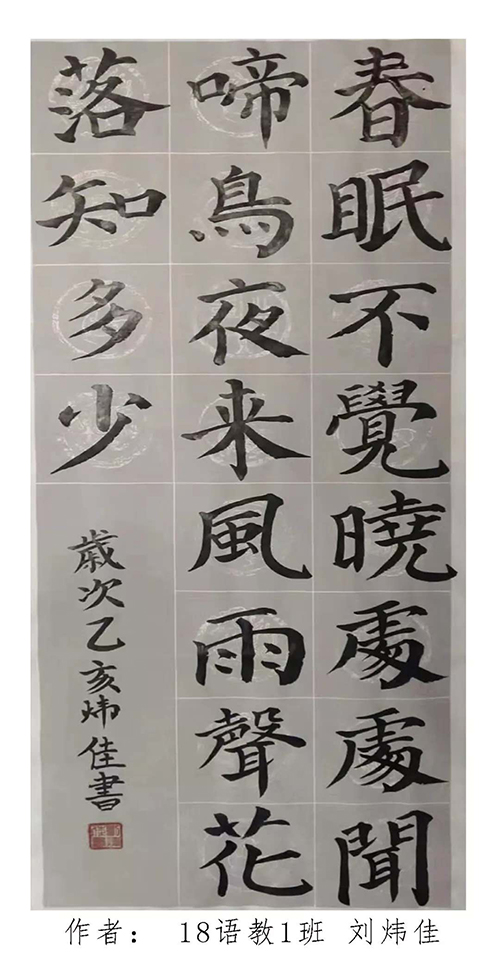 春眠不覺曉處處聞
啼鳥夜来風雨聲花
落知多少
歲次乙亥炜佳書
作者： 18语教1班 刘炜佳